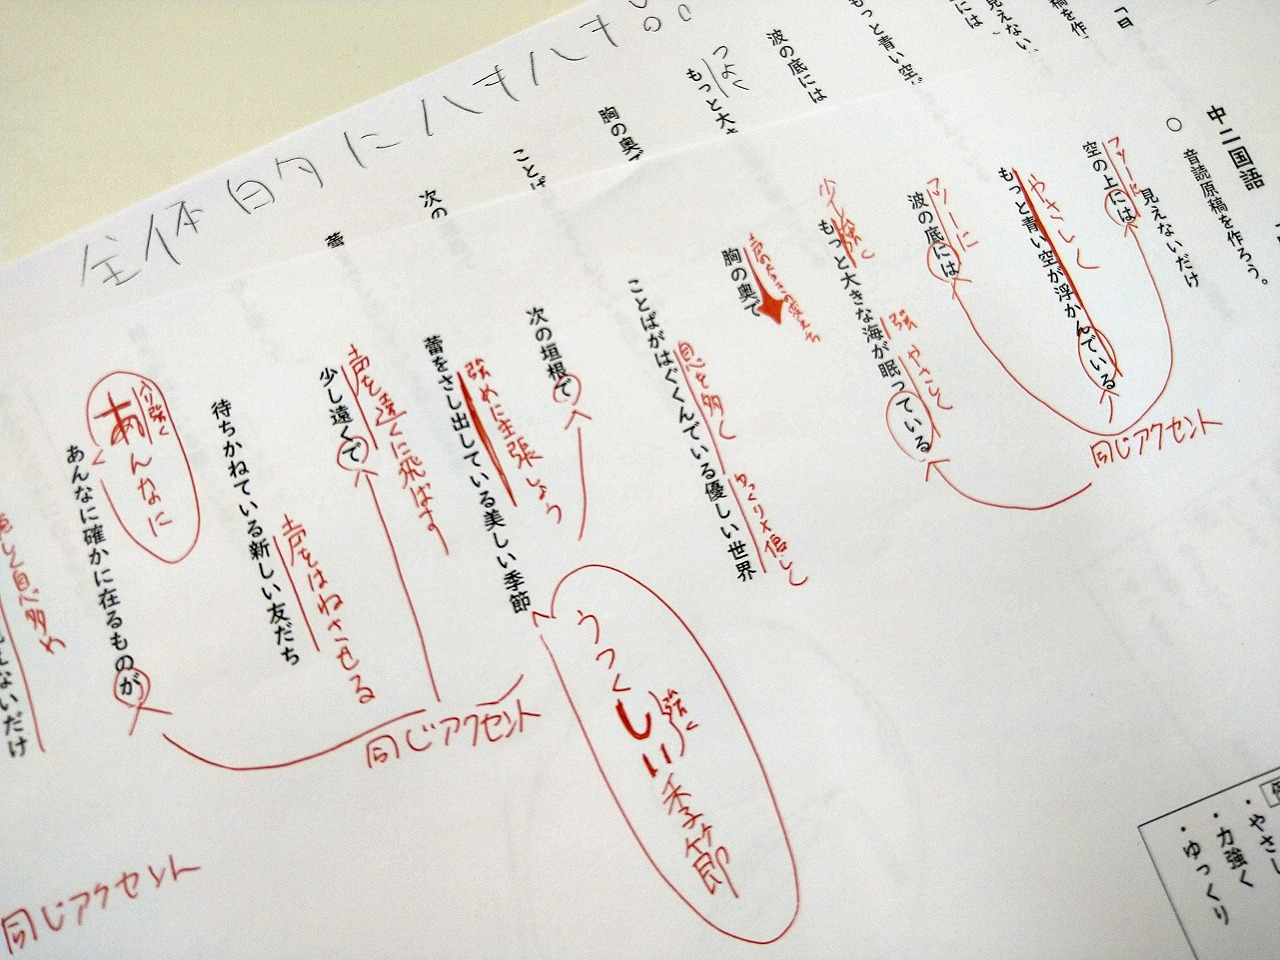 全体的にハキハキ。。
中二国語
○ 音読原稿を作ろう。
見えないだけ
空の上には
フツーに
もっと青い空が浮かんでいる
やさしく
波の底には
フツーに
もっと大きな海が眠っている
少し強く
強
やさしく
胸の奥で
ことばがはぐくんでいる優しい世界
息を多く
ゆっくり×倍しく
次の垣根で
蕾をさし出している美しい季節
強めに主張しよう
うつくしい季節
強く
少し遠くで
声を遠くに飛ばす
待ちかねている新しい友だち
声をはねさせる
あんなに確かに在るものが
あんなに
同じアクセント
同じアクセント
同じアクセント
えないだけ
つよく
もっと大き
波の底には
もっと青い空
胸の奥で
ことば
次の
蕾
には
見えない
稿を作
・やさし
・力強く
・ゆっくり